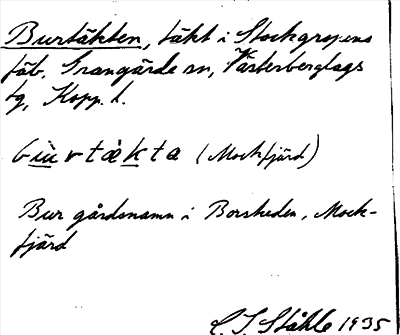 Burtäkten, täkt i Stockgropens
fäb. Grangärde sn, Västerbergslags
tg, Kopp. l.
bùrtäkta (Mockfjärd)
Bur gårdsnamn i Borsheden, Mock-
fjärd
C. I. Ståhle 1935